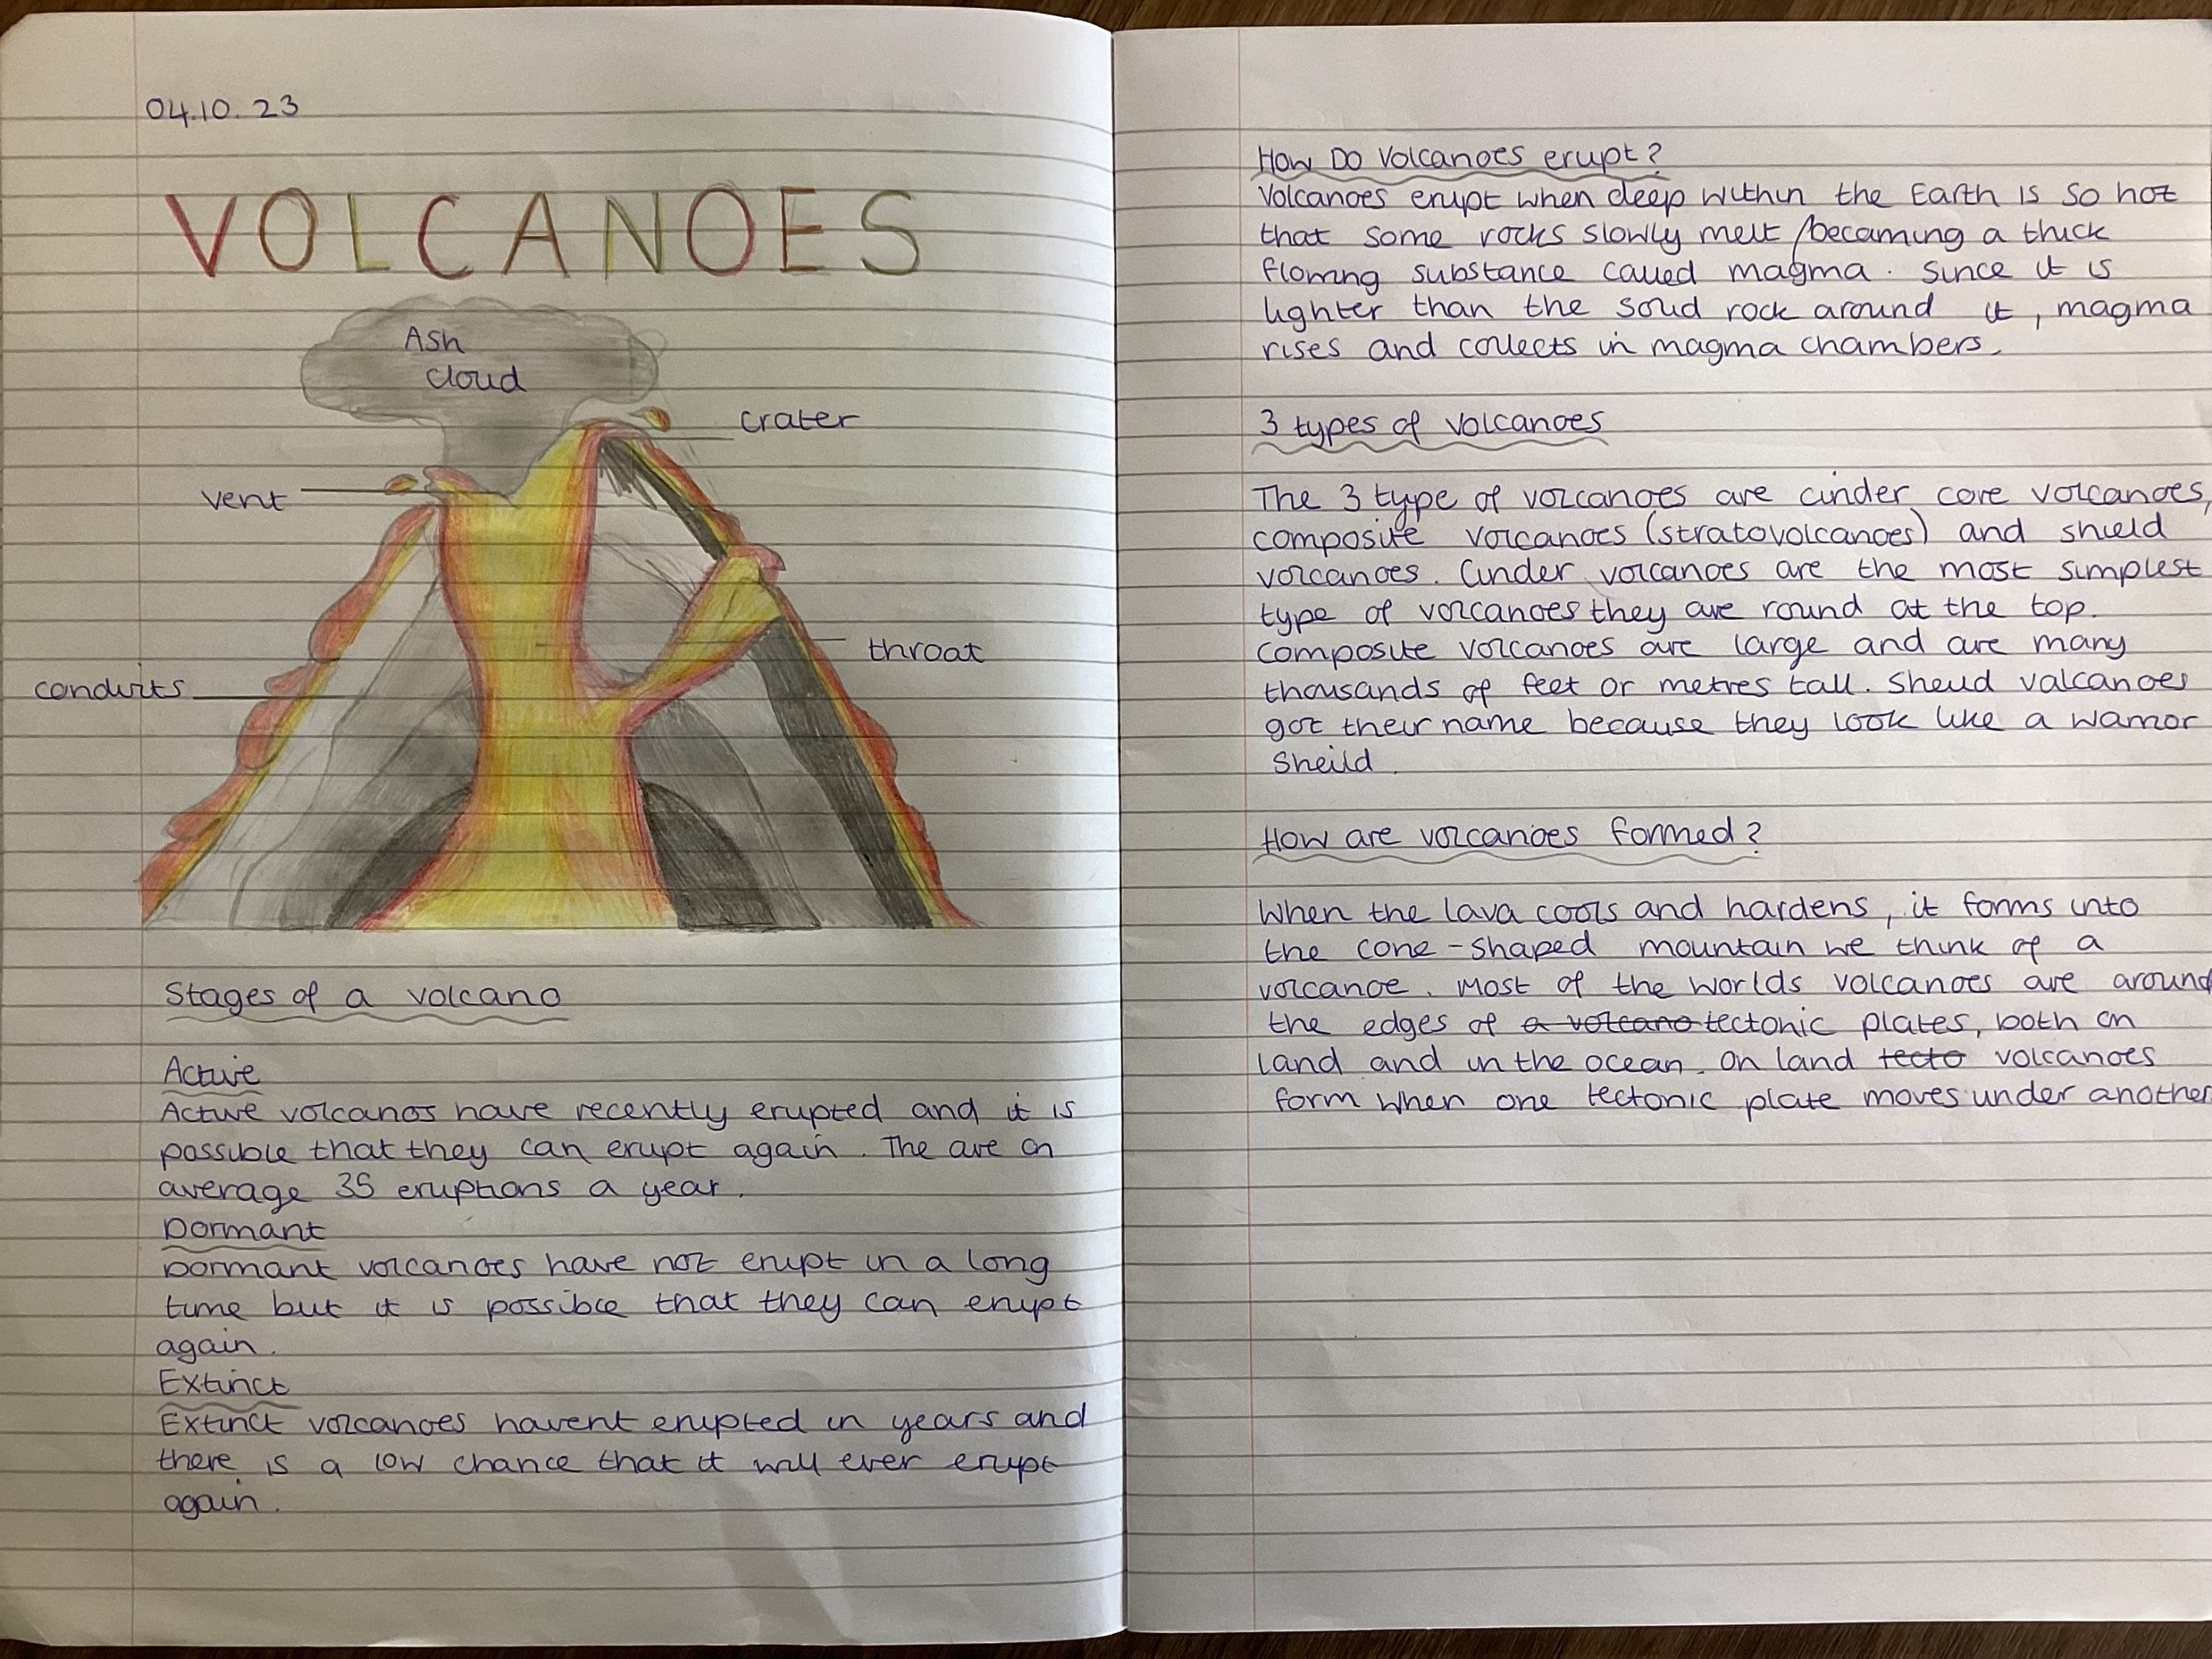 04.10.23
VOLCANOES
Ash
cloud
crater
vent
throat
conduits
Stages of a volcano
Active
Active volcanos have recently erupted and it is
possible that they can erupt again. The are on
average 35 eruptions a year.
Dormant
Dormant volcanoes have not erupt in a long
time but it is possible that they can erupt
again.
Extinct
Extinct volcanoes havent erupted in years and
there is a low chance that it will ever erupt
again.
How Do Volcanoes erupt?
Volcanoes erupt when deep within the Earth is so hot
that some rocks slowly melt /becaming a thick
flowing substance called magma. Since it is
lighter than the solid rock around it, magma
rises and collects in magma chambers.
3 types of volcanoes
The 3 type of volcanoes are cinder core volcanoes,
composite volcanoes (stratovolcanoes) and shield
volcanoes. Cinder volcanoes are the most simplest
type of volcanoes they are round at the top.
Composite volcanoes are large and are many
thousands of feet or metres tall. Sheild valcanoes
got their name because they look like a warrior
Sheild.
How are volcanoes formed?
When the lava cools and hardens, it forms into
the cone-shaped mountain we think of a
volcanoe. Most of the worlds volcanoes are around
the edges of a volcano tectonic plates, both on
land and in the ocean. On land tecto volcanoes
form when one tectonic plate moves under another